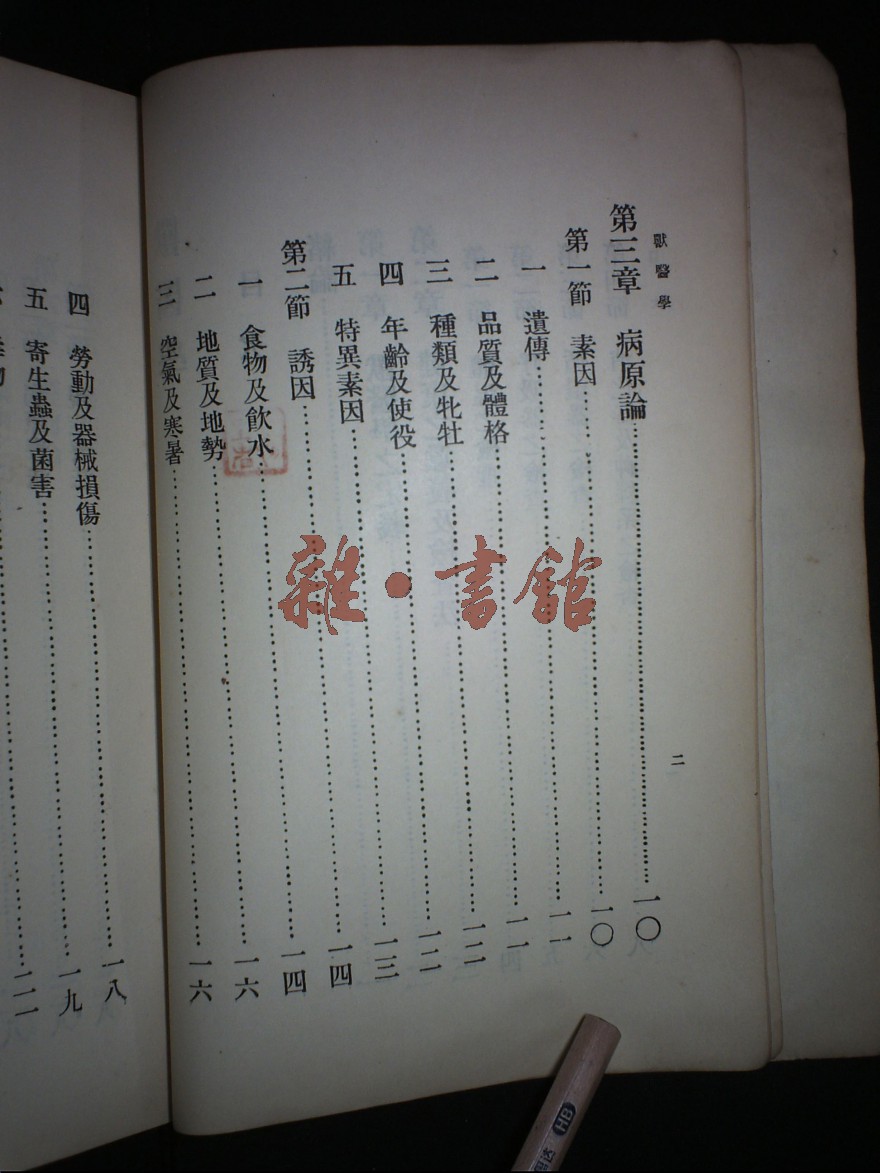 獸醫學
第三章 病原論……一〇
第一節 素因……一〇
一 遺傳……一一
二 品質及體格……一一
三 種類及牝牡……一二
四 年齡及使役……一三
五 特異素因……一四
第二節 誘因……一四
一 食物及飲水……一六
二 地質及地勢……一六
三 空氣及寒暑
二
四 勞動及器械損傷……一八
五 寄生蟲及菌害……一九
二一
雜·書館
HB